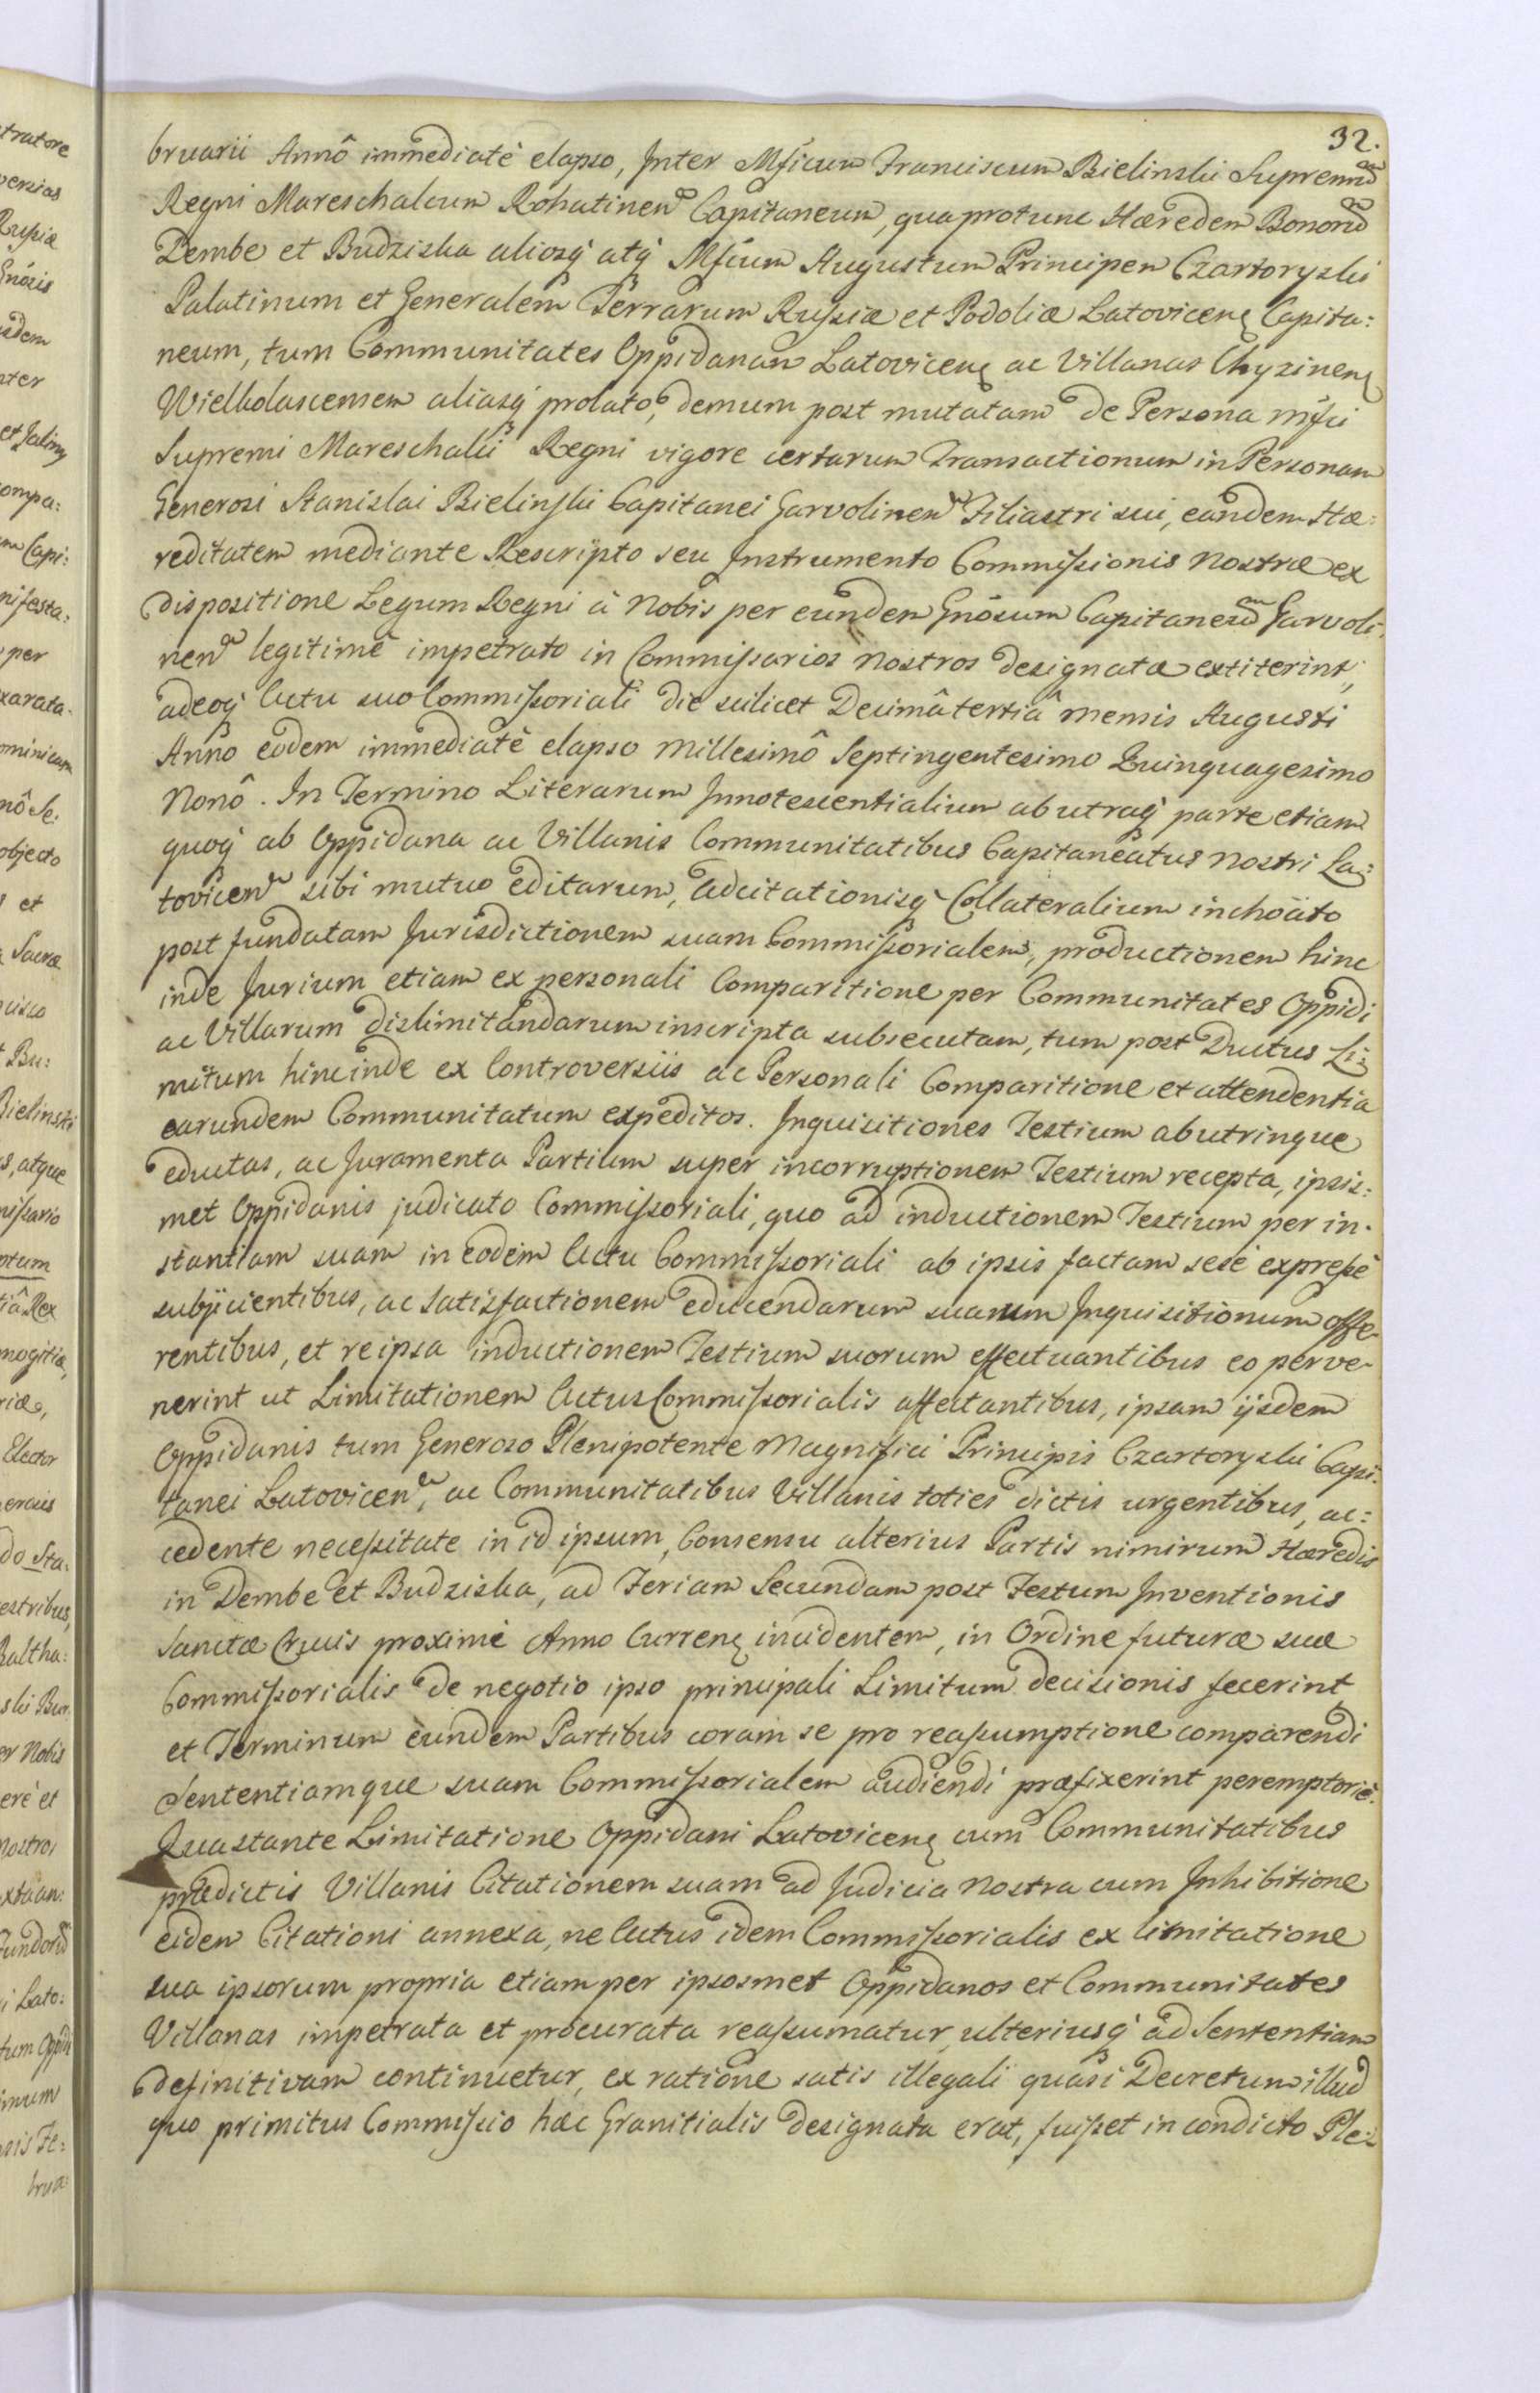 32.
bruarii Annô immediatè elapso, Inter Mficum Franciscum Bielinski Supremu͠m
Regni Mareschalcum Rohatinen͠ Capitaneum, qua protunc Hæredem Bonoru͠m
Dembe et Budziska aliosq́ atq́ Mficum Augustum Principem Czartoryski
Palatinum et Generalem Terrarum Russiæ et Podoliæ Latovicenę Capita:
neum, tum Communitates Oppidanam Latovicenę ac Villanas Chyzinenę
Wielkolascensem aliasq́ prolato, demum post mutatam de Persona Mfici
Supremi Mareschalci Regni vigore certarum Transactionum in Personam
Generosi Stanislai Bielinski Capitanei Garvolinen͠ Filiastri sui, eandem Hæ:
reditatem mediante Rescripto seu Instrumento Commissionis Nostræ ex
dispositione Legum Regni à Nobis per eundem Gnôsum Capitaneu͠m Garvoli:
nen͠ legitimè impetrato in Commissarios Nostros designatæ extiterint,
adeoq́ Actu suo Commissoriali die scilicet Decimâ tertiâ mensis Augusti
Anno eodem immediatè elapso Millesimô Septingentesimo Quinquagesimo
Nonô. In Termino Literarum Innotescentialium ab utraq́ parte etiam
quoq́ ab Oppidana ac Villanis Communitatibus Capitaneatus Nostri La:
tovicen͠ sibi mutuo editarum, Adcitationisq́ Collateralium inchoato
post fundatam Jurisdictionem suam Commissorialem, productionem hinc
inde Jurium etiam ex personali Comparitione per Communitates Oppidi
ac Villarum dislimitandarum inscripta subsecutam, tum post Ductus Li:
mitum hincinde ex Controversiis ac Personali Comparitione et attendentia
earundem Communitatum expeditos. Inquisitiones Testium ab utrinque
eductas, ac Juramenta Partium super incorruptionem Testium recepta, ipsis:
met Oppidanis judicato Commissoriali, quo ad inductionem Testium per in-
stantiam suam in eodem Actu Commissoriali ab ipsis factam sesè expressè
subjicientibus, ac Satisfactionem educendarum suarum Inquisitionum offe-
rentibus, et reipsa inductionem Testium suorum effectuantibus eo perve-
nerint ut Limitationem Actus Commissorialis affectantibus, ipsam ijsdem
Oppidanis tum Generoso Plenipotente Magnifici Principis Czartoryski Capi:
tanei Latovicen͠, ac Communitatibus Villanis toties dictis urgentibus, ac:
cedente necessitate in id ipsum, Consensu alterius Partis nimirum Hæredis
in Dembe et Budziska, ad Feriam Secundam post Festum Inventionis
Sanctæ Crucis proximè Anno Currenę incidentem, in Ordine futuræ suæ
Commissorialis de negotio ipso principali Limitum decisionis fecerint
et Terminum eundem Partibus coram se pro reassumptione comparendi
Sententiamque suam Commissorialem audiendi præfixerint peremptoriè.
Quastante Limitatione Oppidani Latovicenę cum Communitatibus
prædictis Villanis Citationem suam ad Judicia Nostra cum Inhibitione
eidem Citationi annexa, ne Actus idem Commissorialis ex limitatione
sua ipsorum propria etiam per ipsosmet Oppidanos et Communitates
Villanas impetrata et procurata reassumatur, ulteriusq́ ad Sententiam
definitivam continuetur, ex ratione satis illegali quasi Decretum illud
quo primitus Commissio hæc Granitialis designata erat, fuisset in condicto Ple: